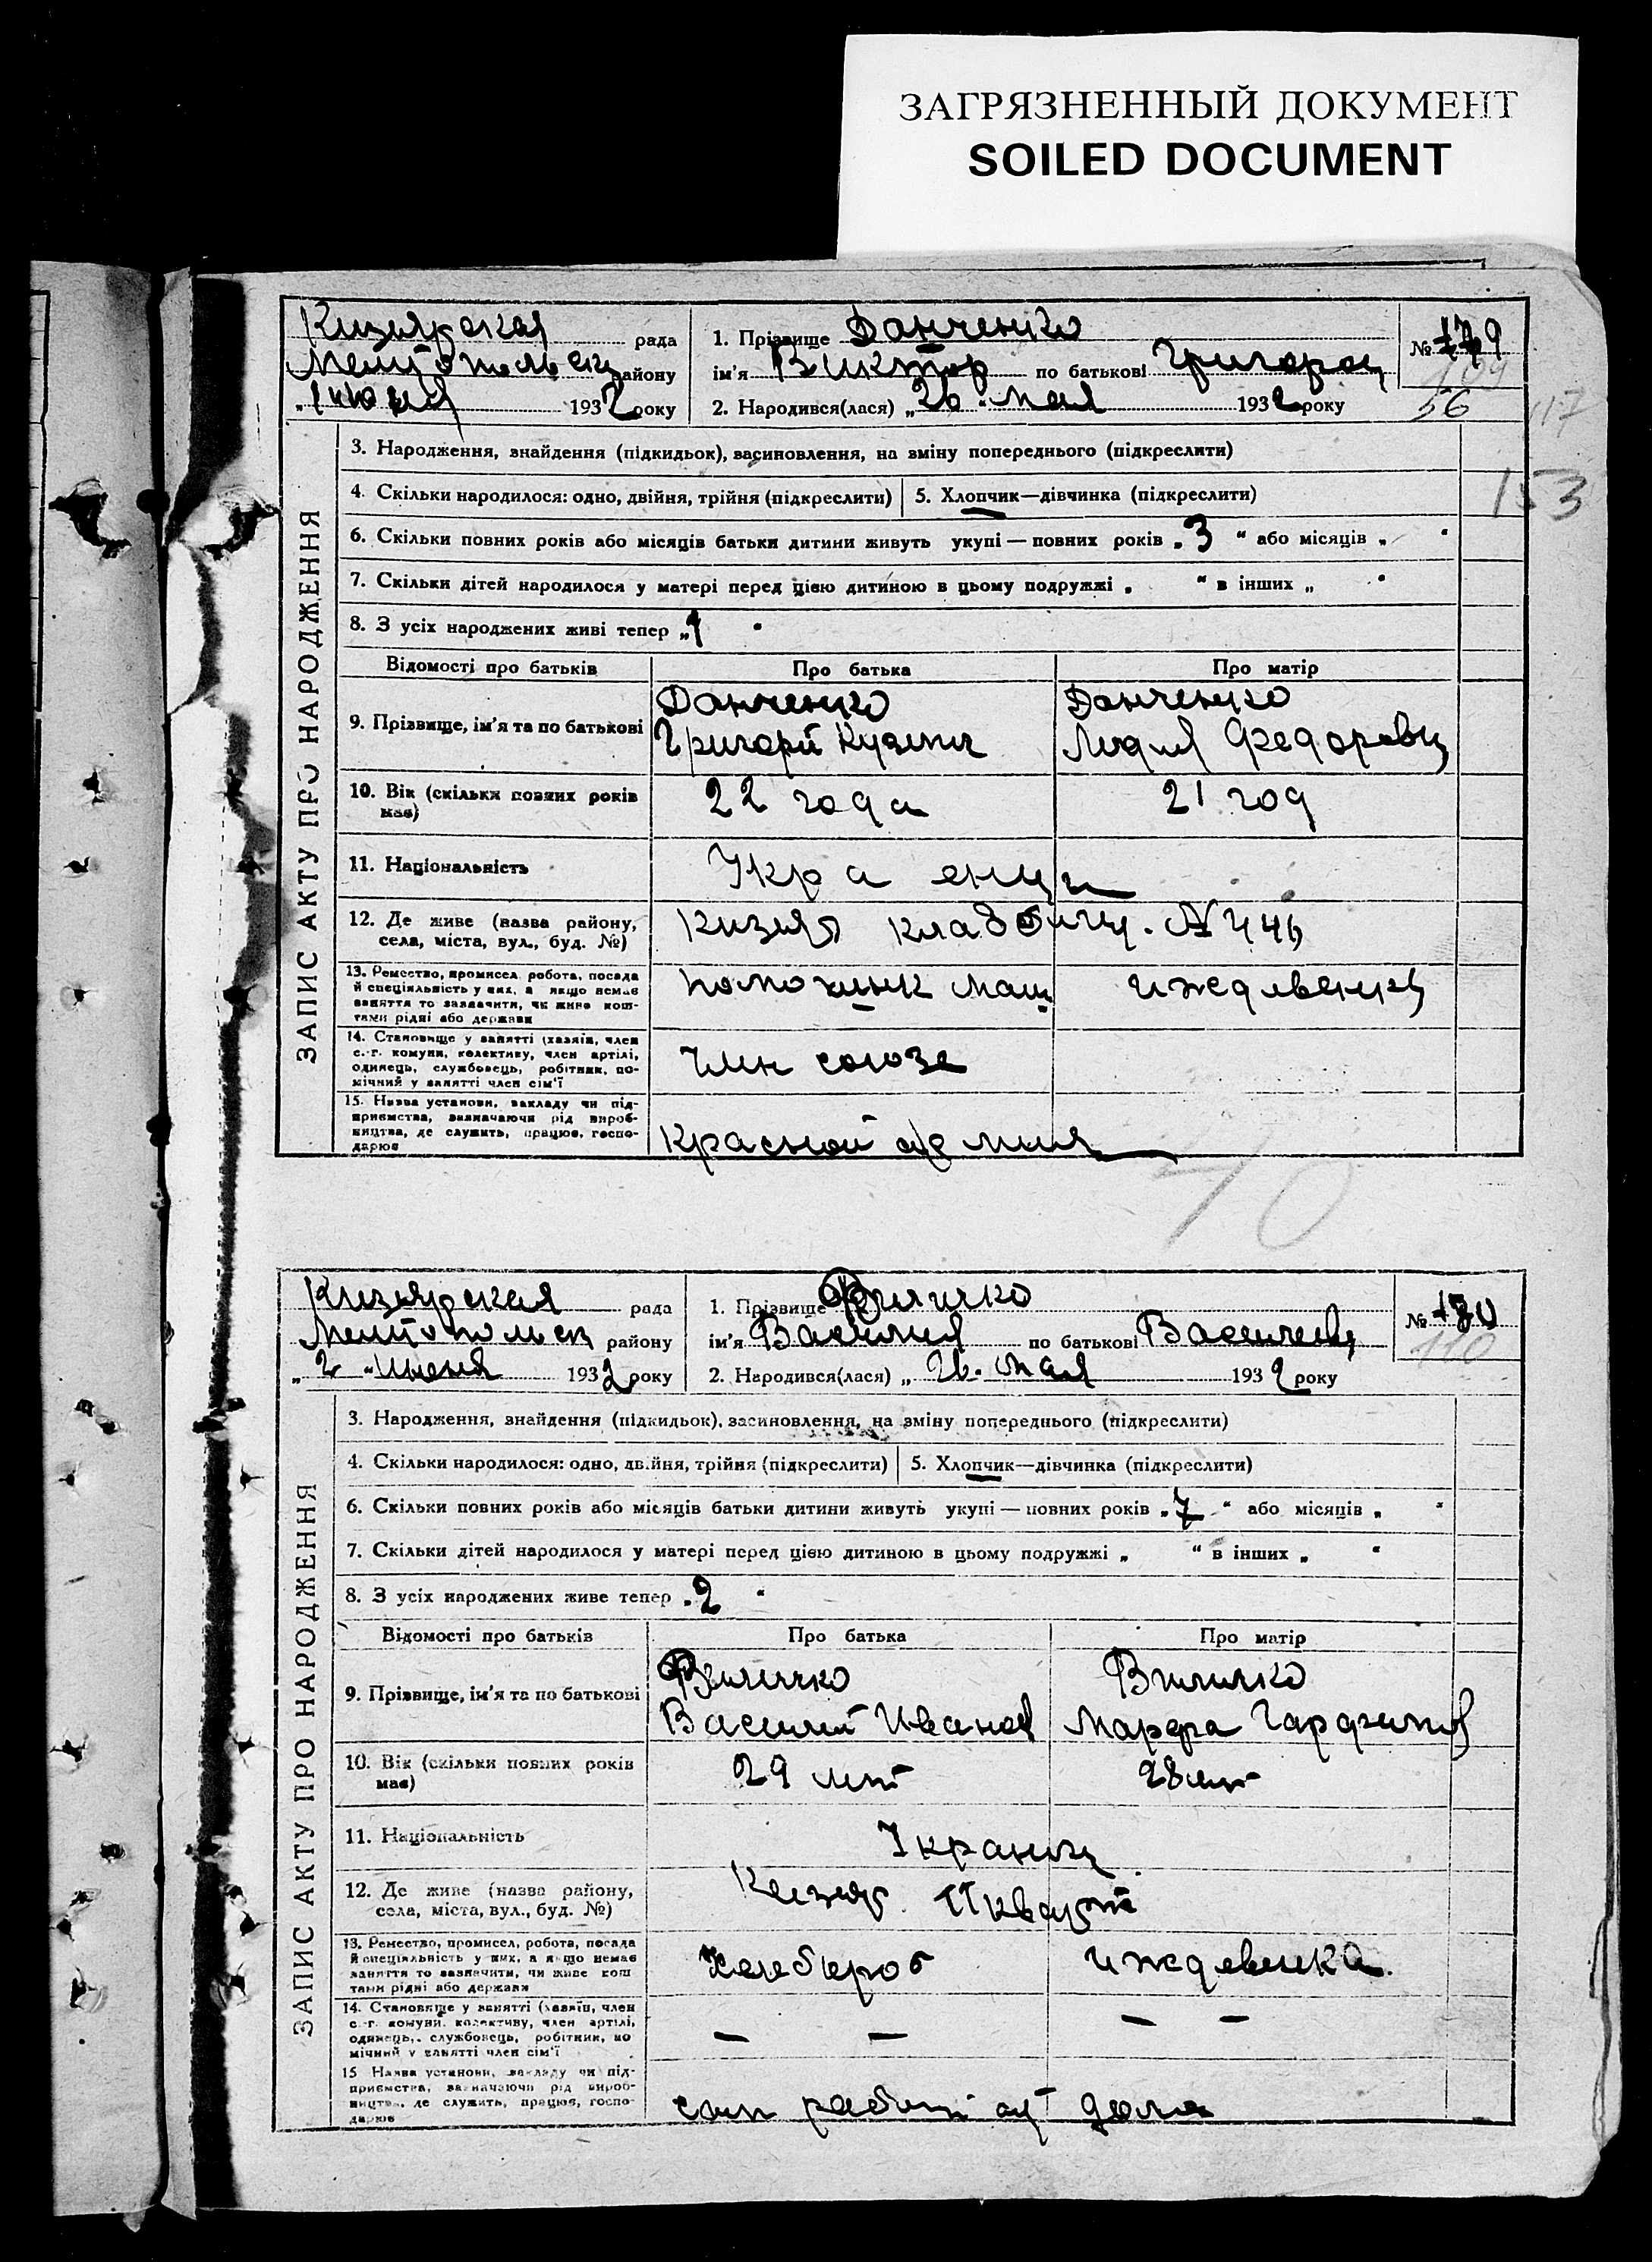 ЗАГРЯЗНЕННЫЙ ДОКУМЕНТ
SOILED DOCUMENT
Кизиярская рада
Мелітопольск району
„1 июня 1932 року
1. Прізвище Данченко
ім'я Виктор по батькові Григоров
2. Народився(лася) „26 " мая 1932 року
№ 179
109
56
117
153
ЗАПИС АКТУ ПРО НАРОДЖЕННЯ
3. Народження, знайдення (підкидьок), засиновлення, на зміну попереднього (підкреслити)
4. Скільки народилося: одно, двійня, трійня (підкреслити) 5. Хлопчик—дівчинка (підкреслити)
6. Скільки повних років або місяців батьки дитини живуть укупі — повних років „3 " або місяців „ "
7. Скільки дітей народилося у матері перед цією дитиною в цьому подружжі „ " в інших „ "
8. З усіх народжених живі тепер „1 "
Відомості про батьків Про батька Про матір
9. Прізвище, ім'я та по батькові
Данченко
Григорій Кузьмич
Данченко
Лидия Федоровн
10. Вік (скільки повних років має)
22 года 21 год
11. Національність
Украенци
12. Де живе (назва району,
села, міста, вул., буд. №)
Кизияр № 446
13. Ремество, промисел, робота, посада
й спеціяльність у них, а якщо немає
заняття то зазначити, чи живе кош-
тами рідні або держави
помошник маш иждевениц
14. Становище у занятті (хазяїн, член
с.-г. комуни, колективу, член артілі,
одинець, службовець, робітник, по-
мічний у занятті член сім'ї
член союза
15. Назва установи, закладу чи під-
приємства, зазначаючи рід вироб-
ництва, де служить, працює, госпо-
дарює
Красной армия
70
Кизиярская рада
Мелитопольск району
„2 " июня 1932 року
1. Прізвище Виличко
ім'я Василия по батькові Васильев
2. Народився(лася) „ 26. мая 1932 року
№ 180
110
ЗАПИС АКТУ ПРО НАРОДЖЕННЯ
3. Народження, знайдення (підкидьок), засиновлення, на зміну попереднього (підкреслити)
4. Скільки народилося: одно, двійня, трійня (підкреслити) 5. Хлопчик—дівчинка (підкреслити)
6. Скільки повних років або місяців батьки дитини живуть укупі — повних років „7 " або місяців „ "
7. Скільки дітей народилося у матері перед цією дитиною в цьому подружжі „ " в інших „ "
8. З усіх народжених живе тепер „2 "
Відомості про батьків Про батька Про матір
9. Прізвище, ім'я та по батькові
Виличко
Василий Иванов
Виличко
Марфа
10. Вік (скільки повних років
має)
29 лет 28 лет
11. Національність
Украинц
12. Де живе (назва району,
села, міста, вул., буд. №)
Кизияр
13. Ремество, промисел, робота, посада
й спеціяльність у них, а якщо немає
заняття то зазначити, чи живе кош-
тами рідні або держави
Хлебороб иждевенка
14. Становище у занятті (хазяїн, член
с.-г. комуни, колективу, член артілі,
одинець, службовець, робітник, по-
мічний у занятті член сім'ї
— — — —
15 Назва установи, закладу чи під-
приємства, зазначаючи рід вироб-
ництва, де служить, працює, госпо-
дарює